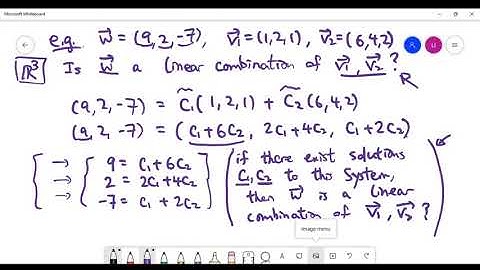 Microsoft Whiteboard
e.g. w⃗ = (9,2,-7), v⃗₁=(1,2,1), v⃗₂=(6,4,2)
ℝ³ Is w⃗ a linear combination of v⃗₁, v⃗₂ ?
R
(9,2,-7) = C₁(1,2,1) + C₂(6,4,2)
(9,2,-7) = (C₁+6C₂, 2C₁+4C₂, C₁+2C₂)
{ → { 9 = C₁+6C₂
→ 2 = 2C₁+4C₂
→ -7 = C₁ + 2C₂
if there exist solutions
C₁,C₂ to this system,
then w⃗ is a linear
combination of v⃗₁, v⃗₂ ?
Image menu